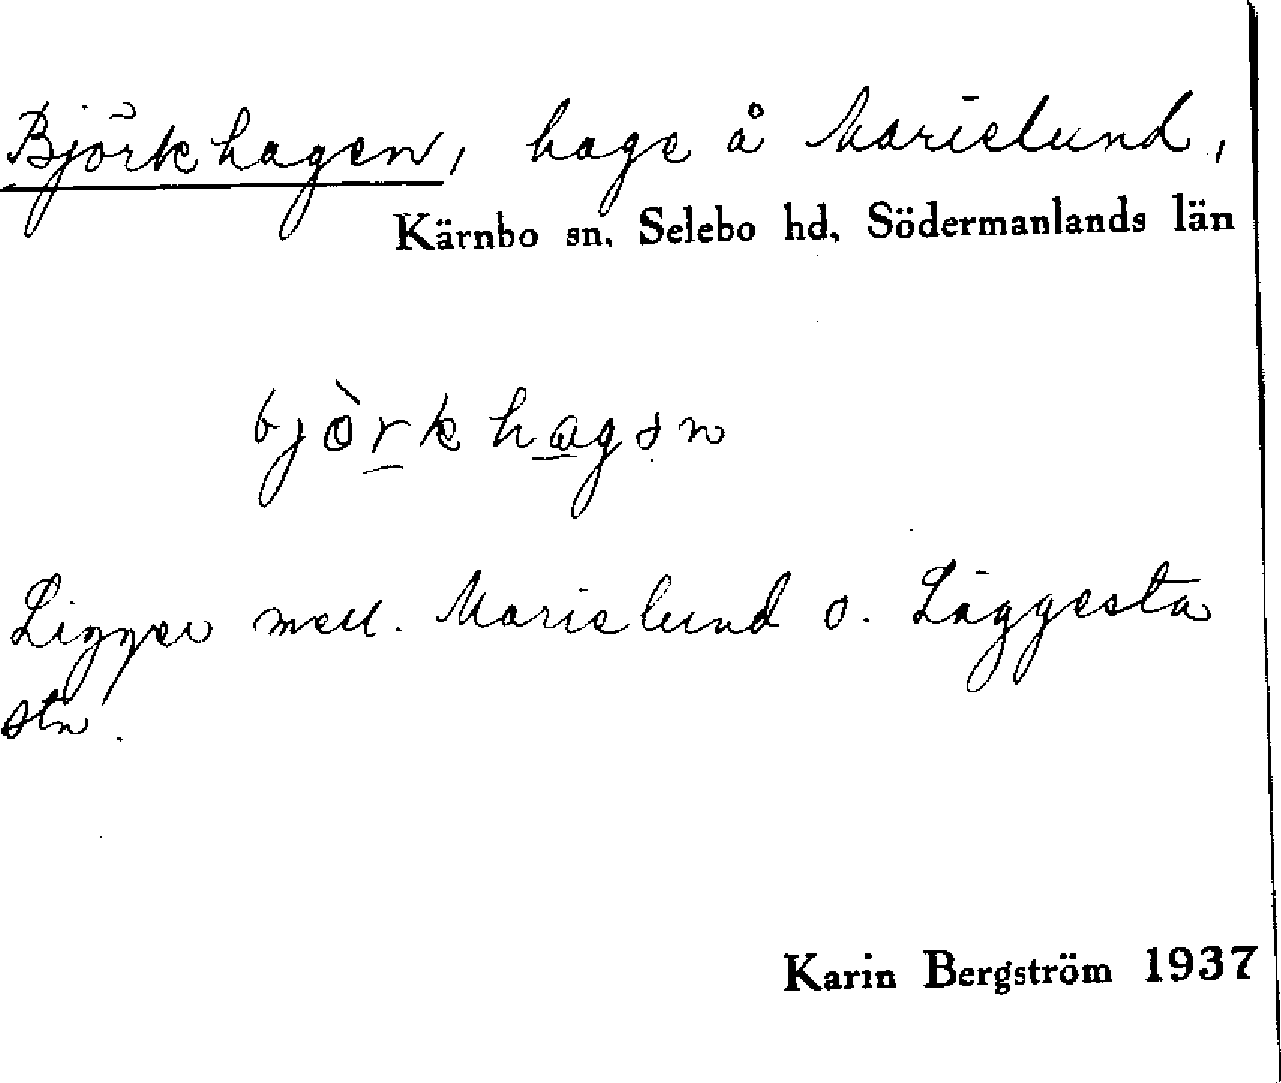 Björkhagen, hage å Marielund,
Kärnbo sn, Selebo hd, Södermanlands län
bjòrkhagən
Ligger mell. Marielund o. Läggesta
stn.
Karin Bergström 1937